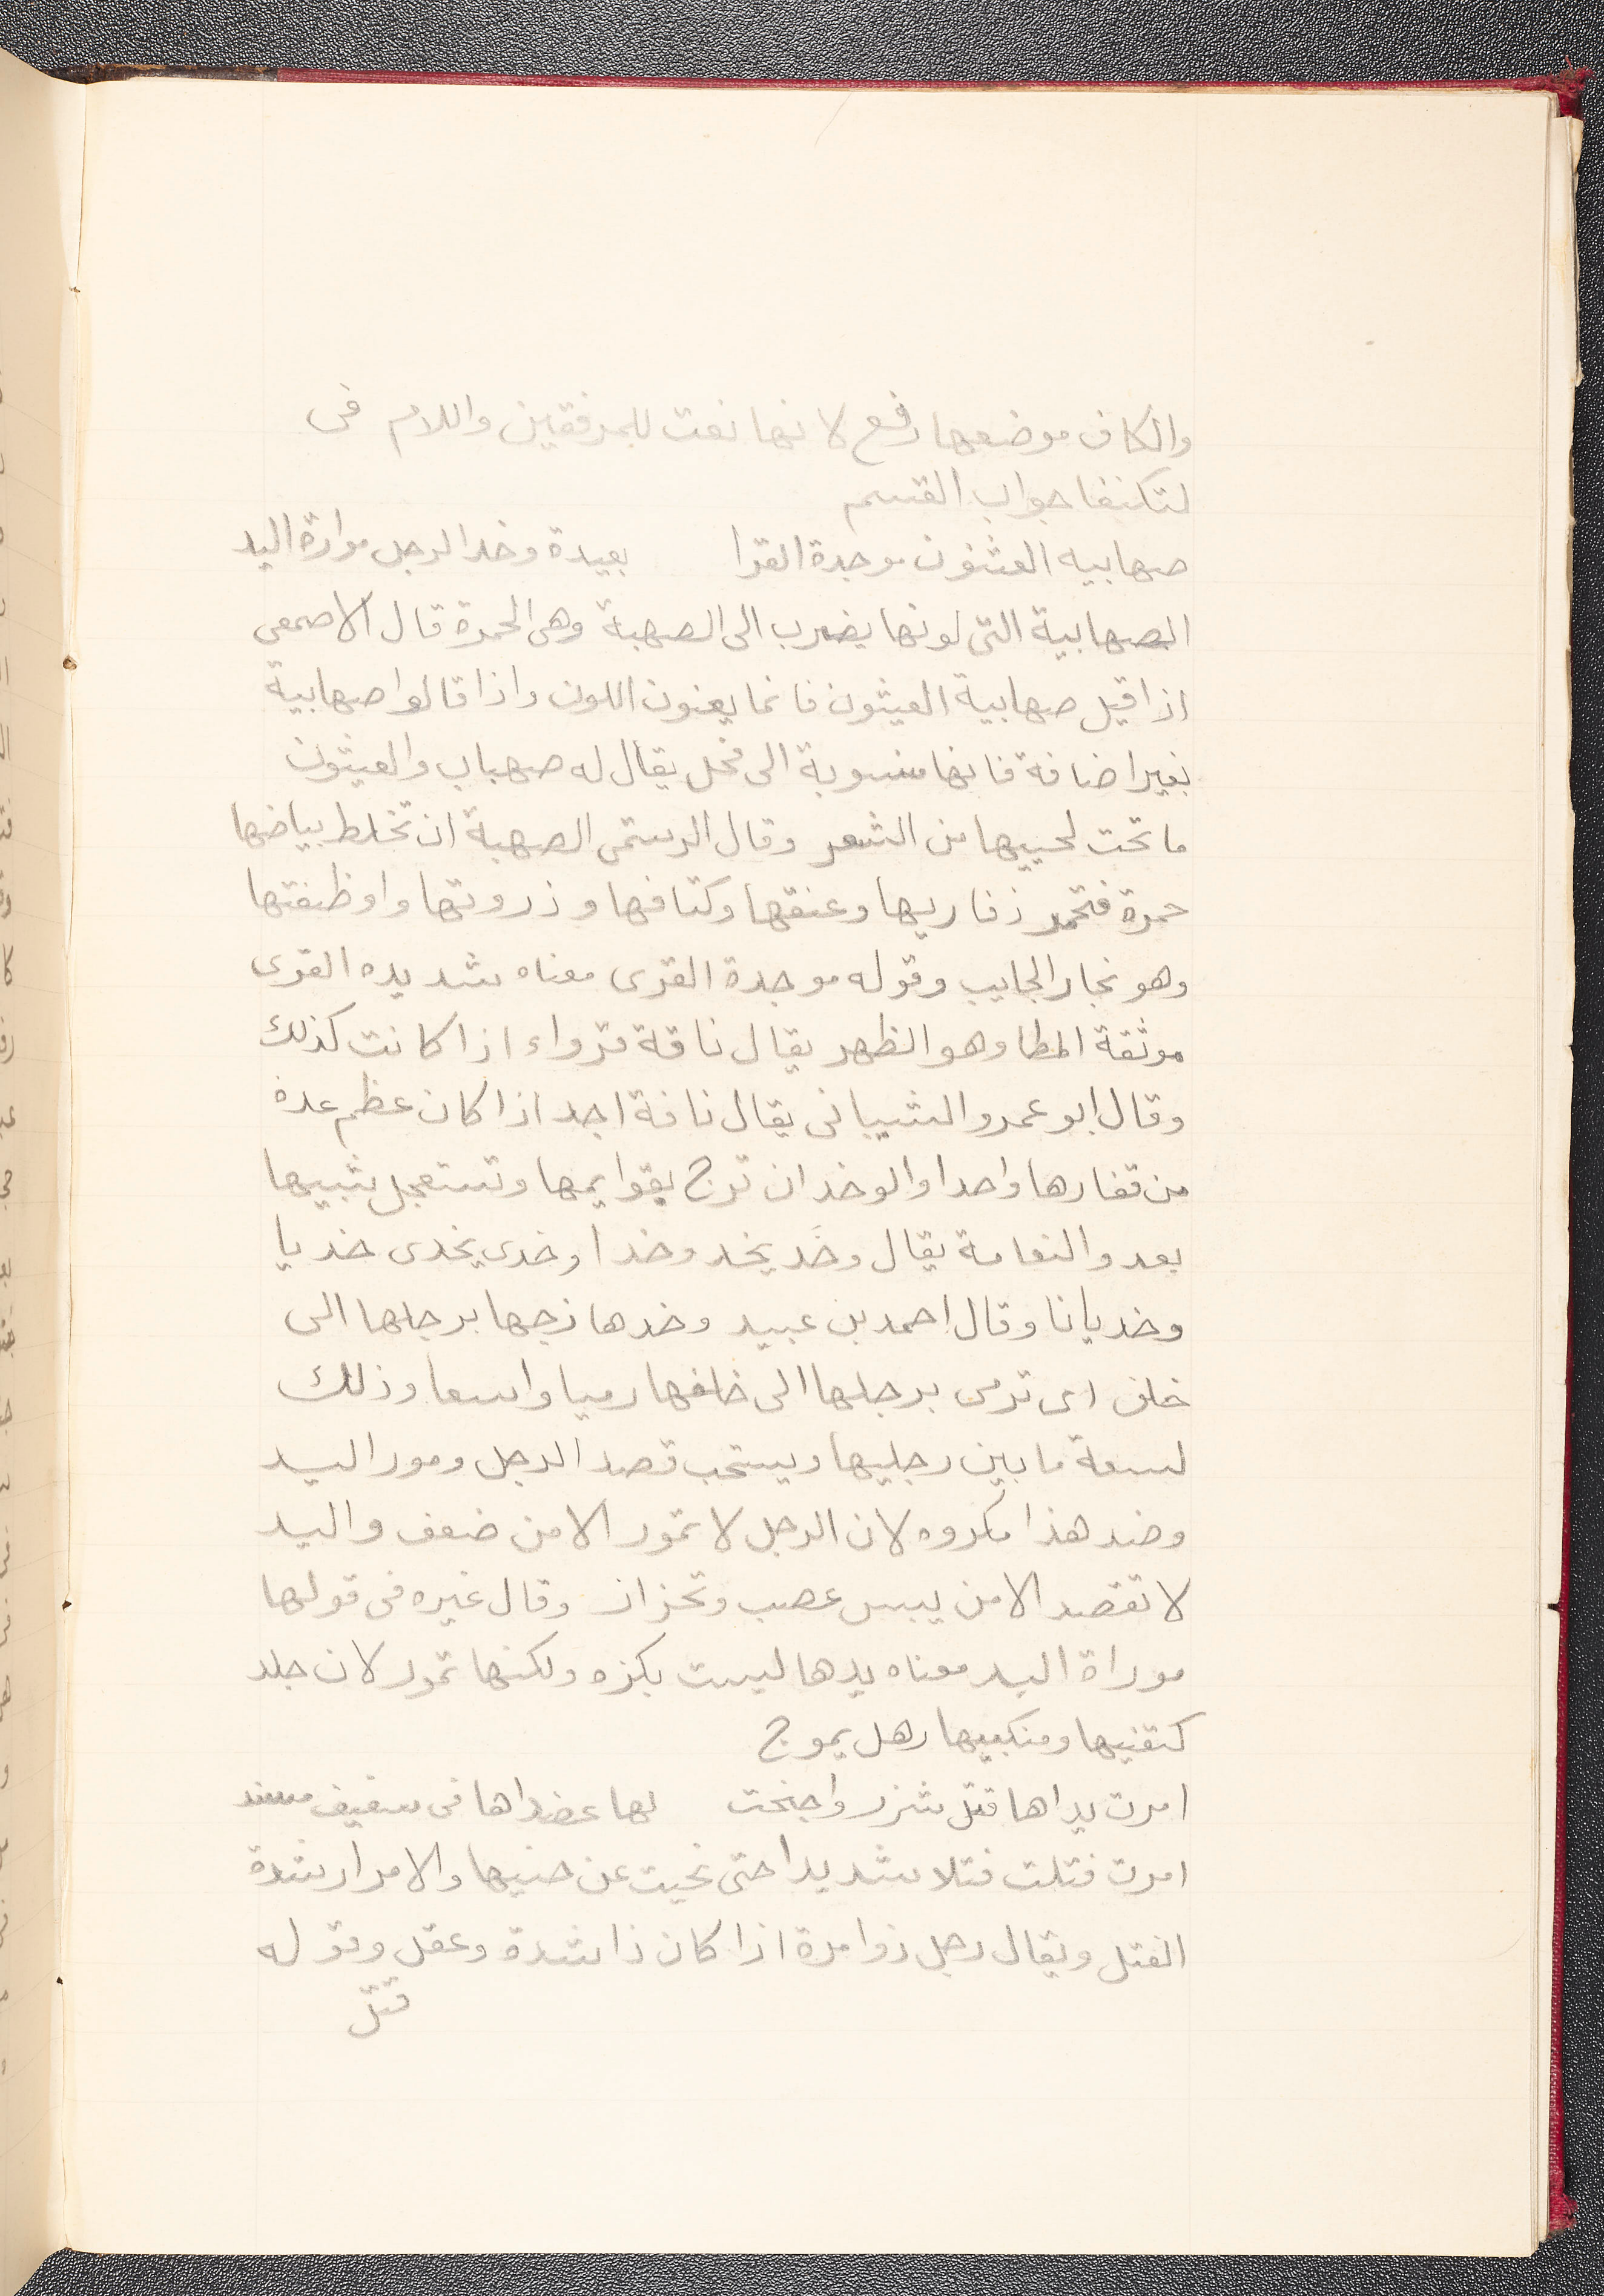 والكاف موضعها رفع لانها نعت للمرفقين واللام فى
لتكنفا جواب القسم
صهابيه العثنون موجدة القرا بعيدة وخد الرجل موارة اليد
الصهابية التى لونها يضرب الى الصهبة وهى الحمرة قال الاصمعى
اذا قيل صهابية العيثون فانما يعنون اللون واذا قالوا صهابية
بغير اضافة فانها منسوبة الى فحل يقال له صهباب والعيثون
ما تحت لحييها من الشعر وقال الرستمى الصهبة ان تخلط بياضها
حمرة فتحمر ذفاريها وعنقها وكتافها وذروتها واوظفتها
وهو نجار الجايب وقوله موجدة القرى معناه شديده القرى
موثقة المطا وهو الظهر يقال ناقة قرواء اذا كانت كذلك
وقال ابو عمرو الشيبانى يقال ناقة اجد اذا كان عظم عدة
من قفارها واحدا والوخد ان تزج بقوايمها وتستعجل شبيها
بعدو النعامة يقال وخَد يخد وخدا وخدى يخدى خديا
وخديانا وقال احمد بن عبيد وخدها زجها برجلها الى
خلف اى ترمى برجلها الى خلفها رميا واسعا وذلك
لسعة ما بين رجليها ويستحب قصد الرجل ومور اليد
وضد هذا مكروه لان الرجل لا تمور الا من ضعف واليد
لا تقصد الا من يبس عصب وتحزاز وقال غيره فى قولها
موراة اليد معناه يدها ليست بكزه ولكنها تمور لان جلد
كتفيها ومنكبيها رهل يموج
امرت يداها فتل شزر واجنحت لها عضداها فى سقيف مسند
امرت فتلت فتلا شديدا حتى نحيت عن جنبها والامرار شدة
الفتل ويقال رجل ذوا مرة اذا كان ذا شدة وعقل وقوله
فتل